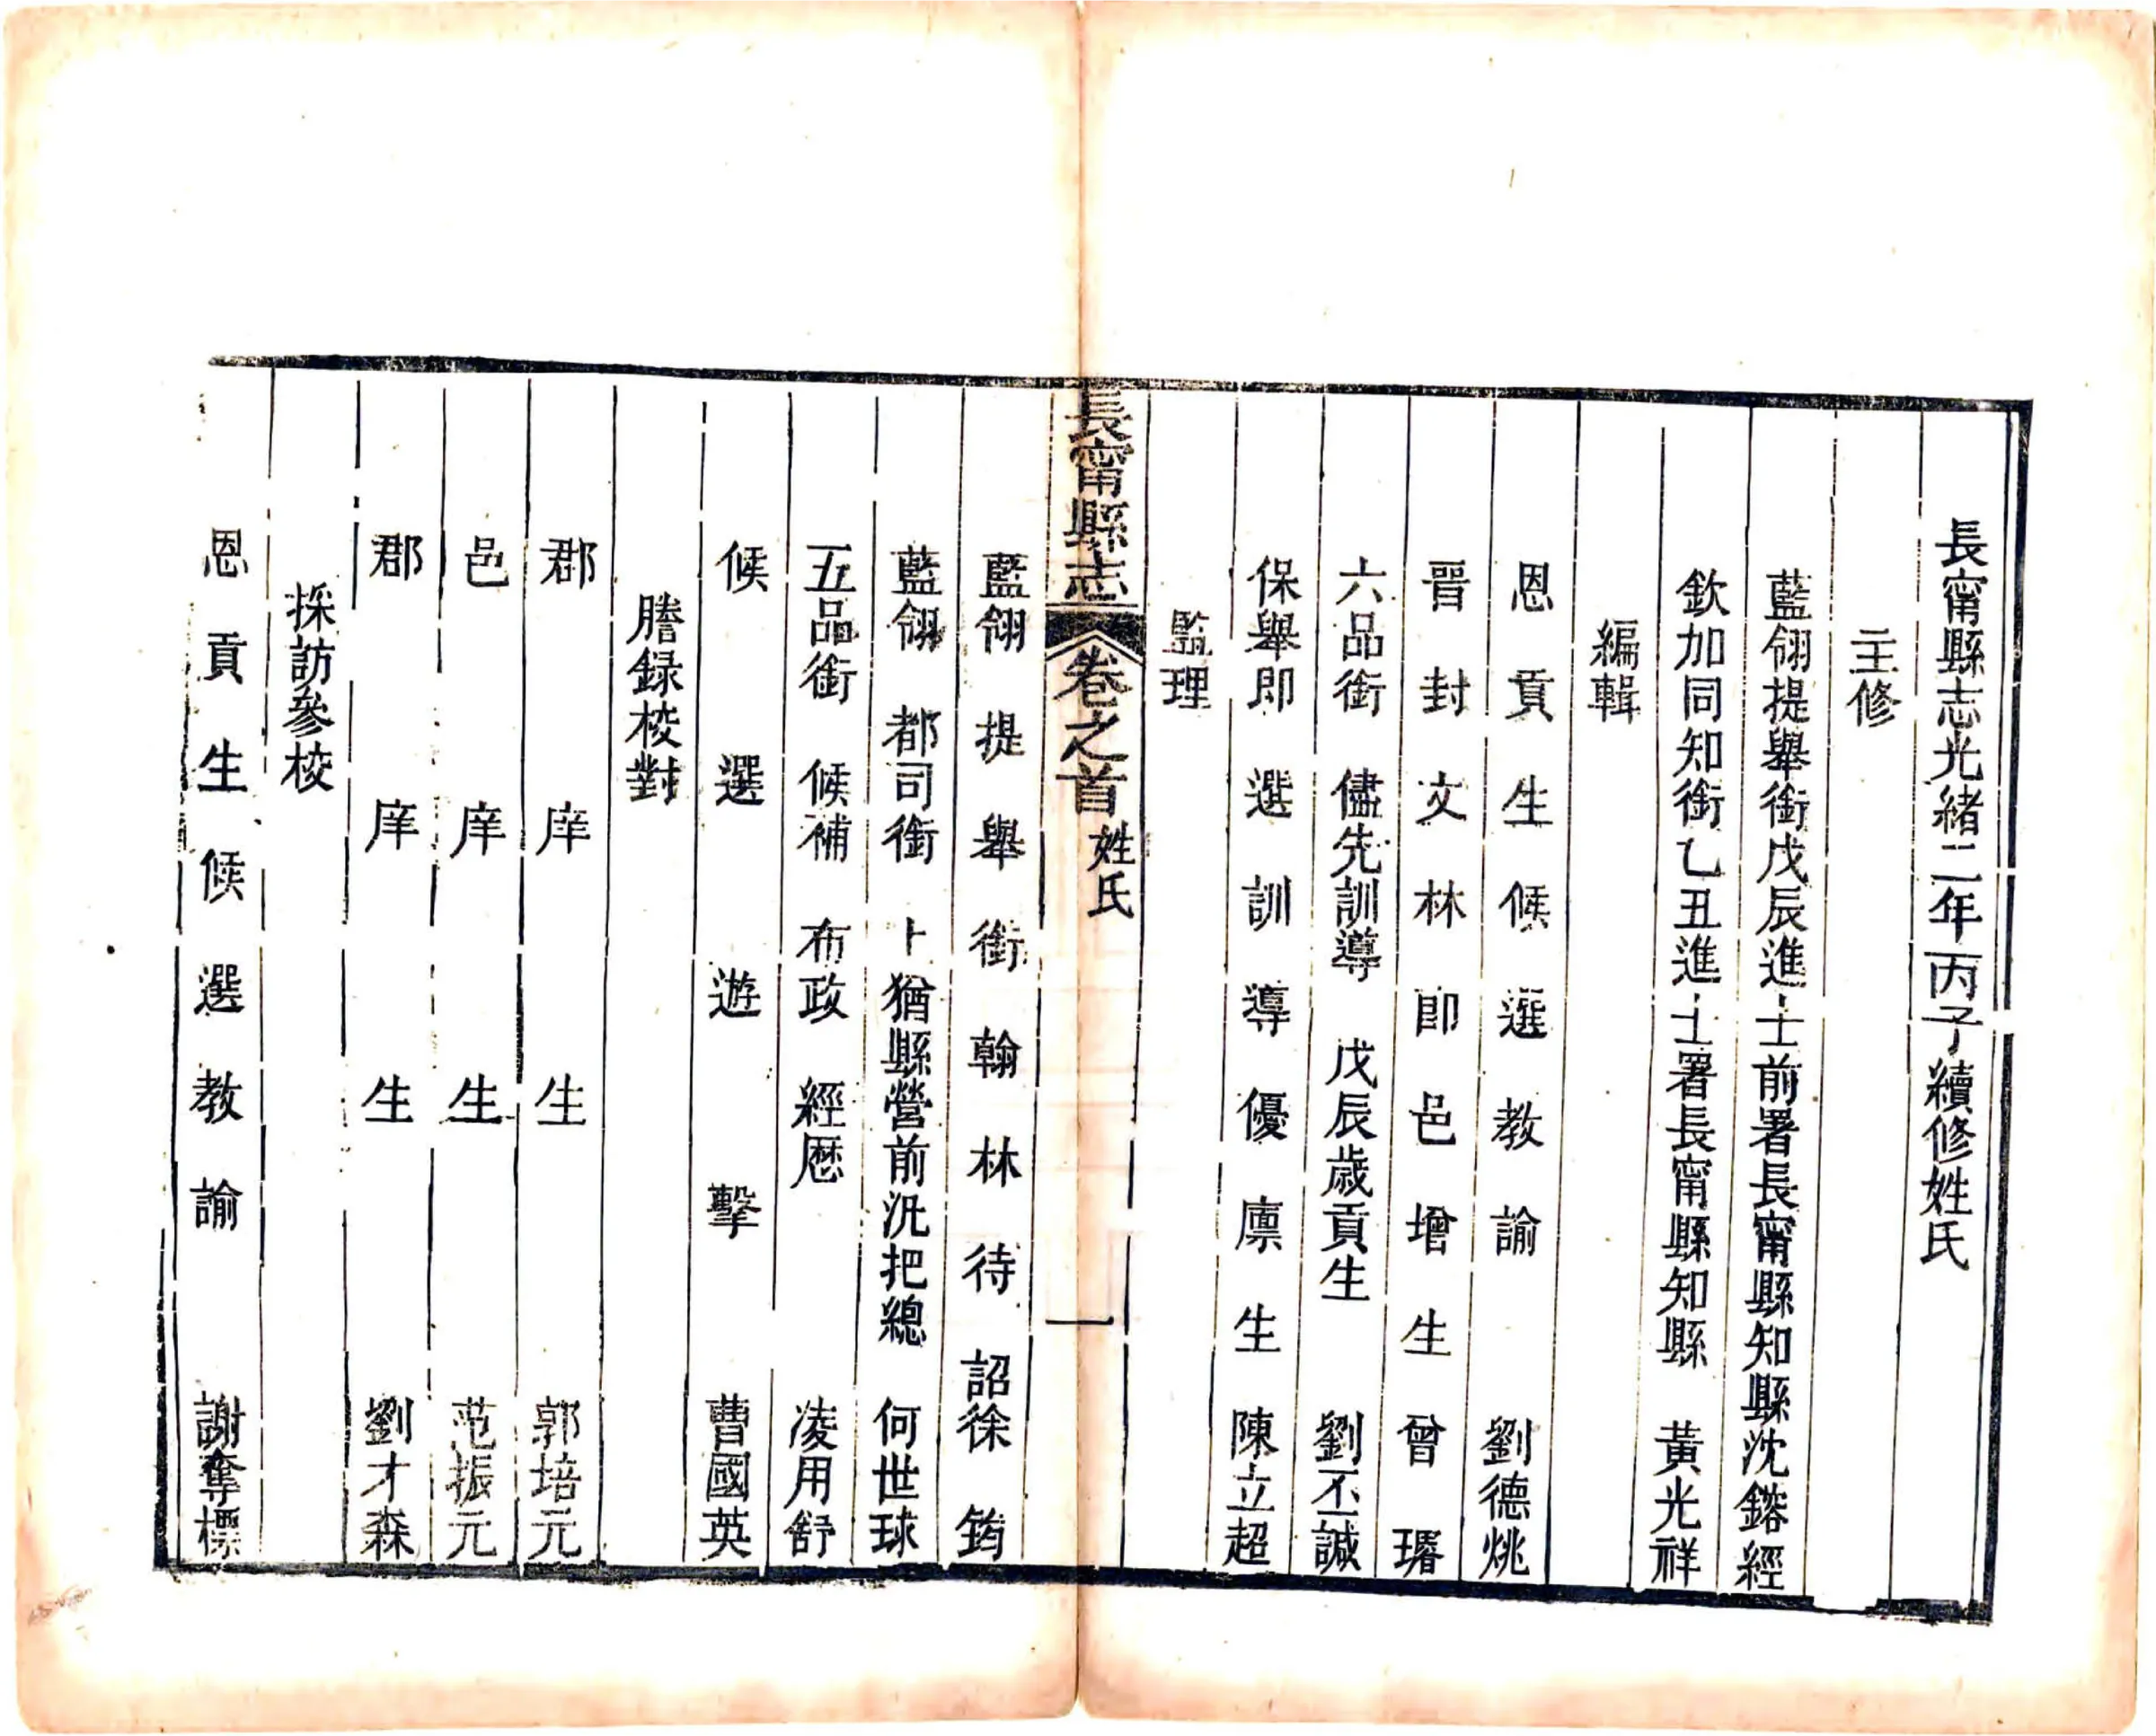 長甯縣志光緒二年丙子續修姓氏
主修
藍翎提舉銜戊辰進士前署長甯縣知縣沈鎔經
欽加同知銜乙丑進士署長甯縣知縣 黃光祥
編輯
恩貢生候選教諭 劉德姚
晋封文林郎邑增生曾 瑃
六品銜 儘先訓導 戊辰歲貢生 劉丕諴
保舉即選訓導優廪生 陳立超
監理
長甯縣志 卷之首 姓氏 一
藍翎提舉銜翰林待詔徐 筠
藍翎 都司銜 上猶縣營前汛把總 何世球
五品銜 候補 布政 經歷 凌用舒
候選遊擊 曹國英
謄録校對
郡庠生 郭培元
邑庠生 范振元
郡庠生 劉才森
採訪參校
恩貢生候選教諭 謝奪標